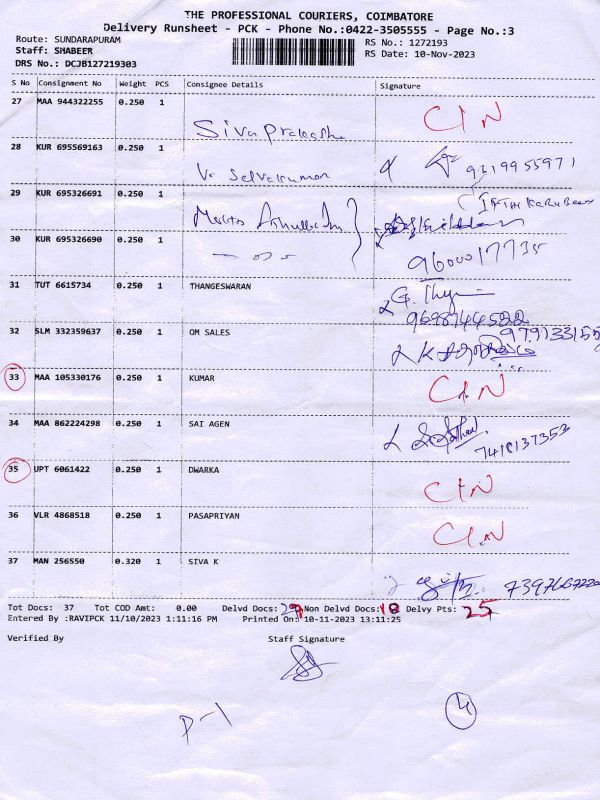 THE PROFESSIONAL COURIERS, COIMBATORE
Delivery Runsheet - PCK - Phone No.:0422-3505555 - Page No.:3
Route: SUNDARAPURAM
Staff: SHABEER
DRS No.: DCJB127219303
RS No.: 1272193
RS Date: 10-Nov-2023
S No Consignment No Weight PCS Consignee Details Signature
27 MAA 944322255 0.250 1 Siva Prakash CIN
28 KUR 695569163 0.250 1 V. Selvakumar 9319955971
29 KUR 695326691 0.250 1
30 KUR 695326690 0.250 1 - do - 9600017735
31 TUT 6615734 0.250 1 THANGESWARAN
32 SLM 332359637 0.250 1 OM SALES
33 MAA 105330176 0.250 1 KUMAR CIN
34 MAA 862224298 0.250 1 SAI AGEN 7418137353
35 UPT 6061422 0.250 1 DWARKA CIN
36 VLR 4868518 0.250 1 PASAPRIYAN CIN
37 MAN 256550 0.320 1 SIVA K
Tot Docs: 37 Tot COD Amt: 0.00 Delvd Docs: Non Delvd Docs: Delvy Pts: 25
Entered By :RAVIPCK 11/10/2023 1:11:16 PM Printed On: 10-11-2023 13:11:25
Verified By Staff Signature
P-1
4